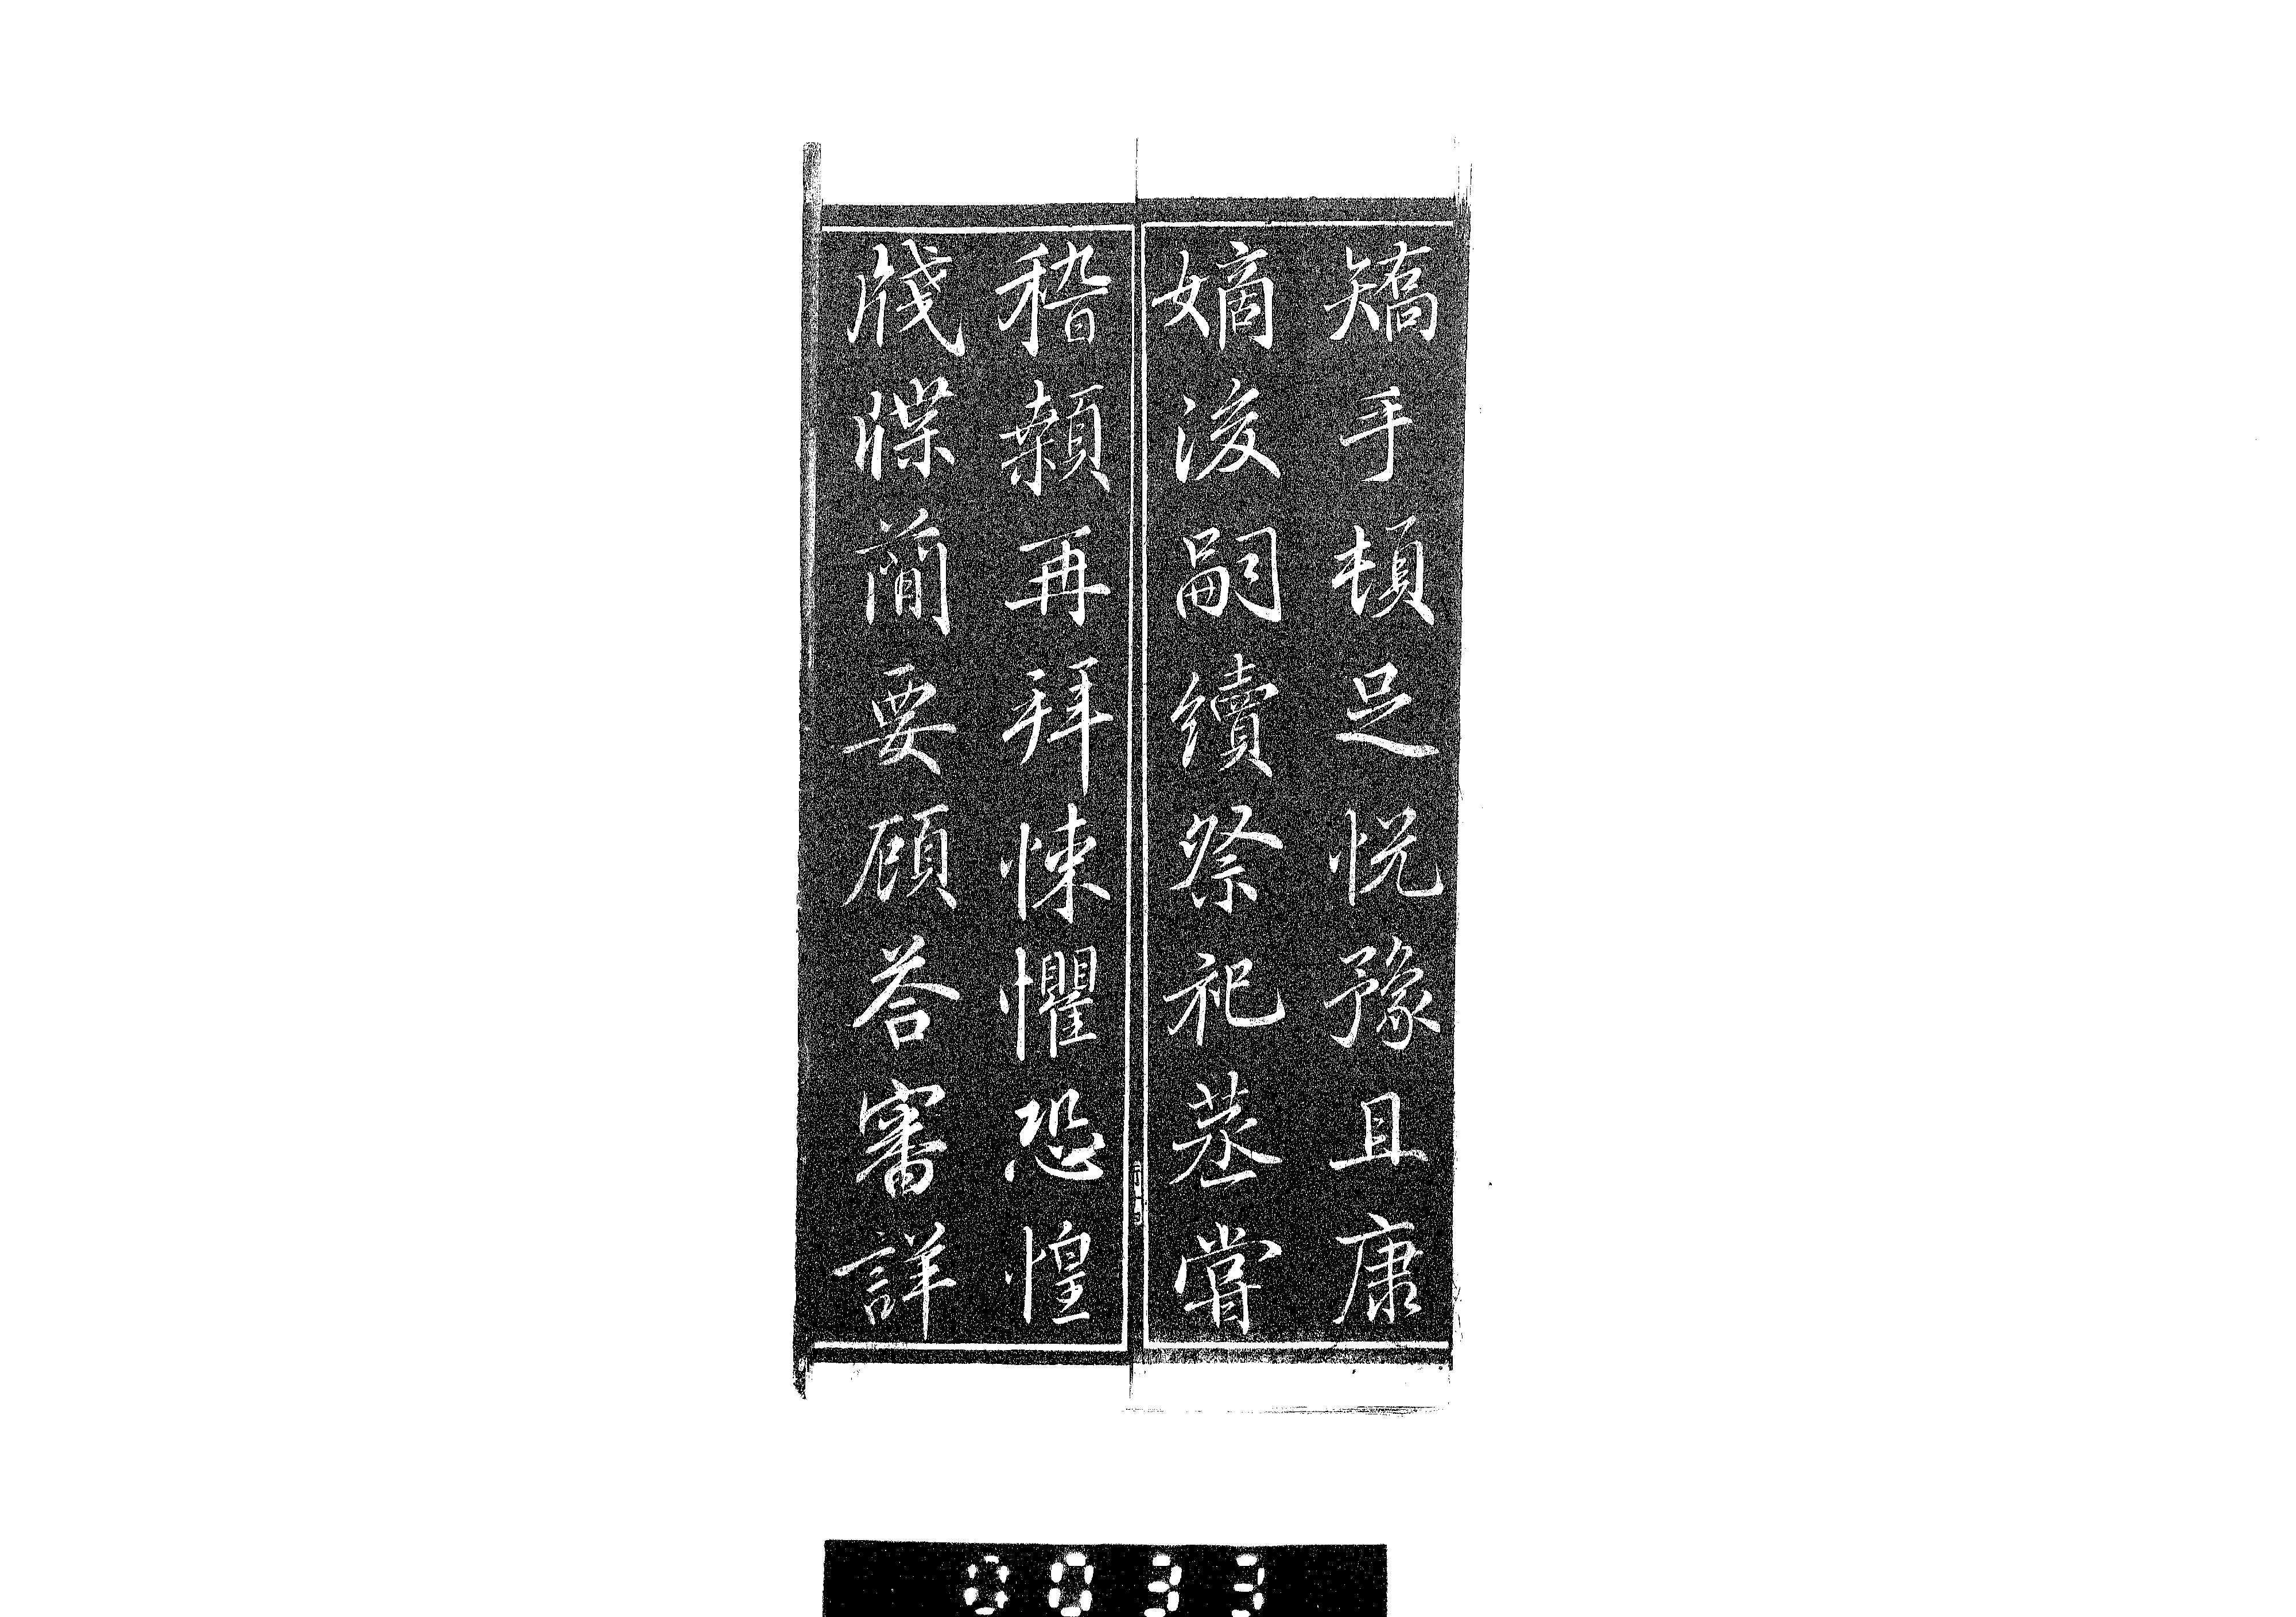 矯手頓足悅豫且康
嫡後嗣續祭祀蒸嘗
稽顙再拜悚懼恐惶
牋牒簡要顧答審詳
0033